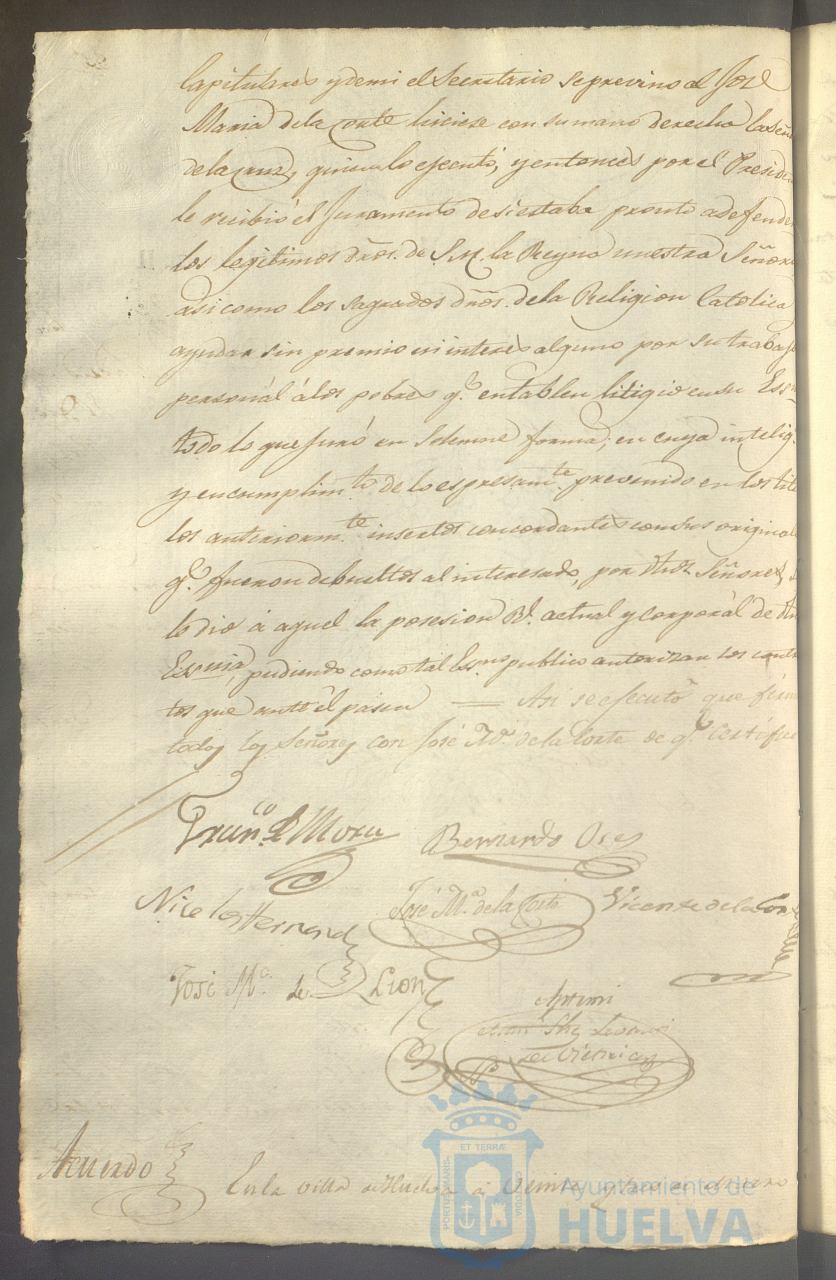 Capitulares y demi el Secretario se previno al José
Maria dela Corte hiciese con su mano derecha la Señ
dela Cruz, quien lo egecutó, y entonces por el Presid
le recibió el Juramento de si estaba pronto a defender
los legitimos dros. de S.M. la Reyna nuestra Señora
asi como los sagrados dros. dela Religion Catolica
ayudar sin premio ni interes alguno por su trabajo
personál álos pobres q.e entablen litigio en su Ess
todo lo que Juró en solemne forma; en cuya intelig.
y en cumplim.to de lo espresam.te prevenido en los titu
los anteriorm.te insertos concordantes con sus original
q.e fueron debueltos al interesado, por dhos Señores,
le dio á aquel la posesion Rl. actual y corporál de dh
Esnia, pudiendo como tal Es.no publico autorizar los contra
tos que ante él pasen — Asi se egecutó que firm
todos los Señores con José M.a dela Corte de q.e Certifico
Fran.co de Mora
Bernardo
Nicolas Hernand
José M.a dela Corte
Vicente dela Cor
José M.a de Leon
Ante mi
Acuerdo
En la villa de Huelva á veinte y
ET TERRÆ
CUSTODIA
PORTUS MARIS
Ayuntamiento de
HUELVA